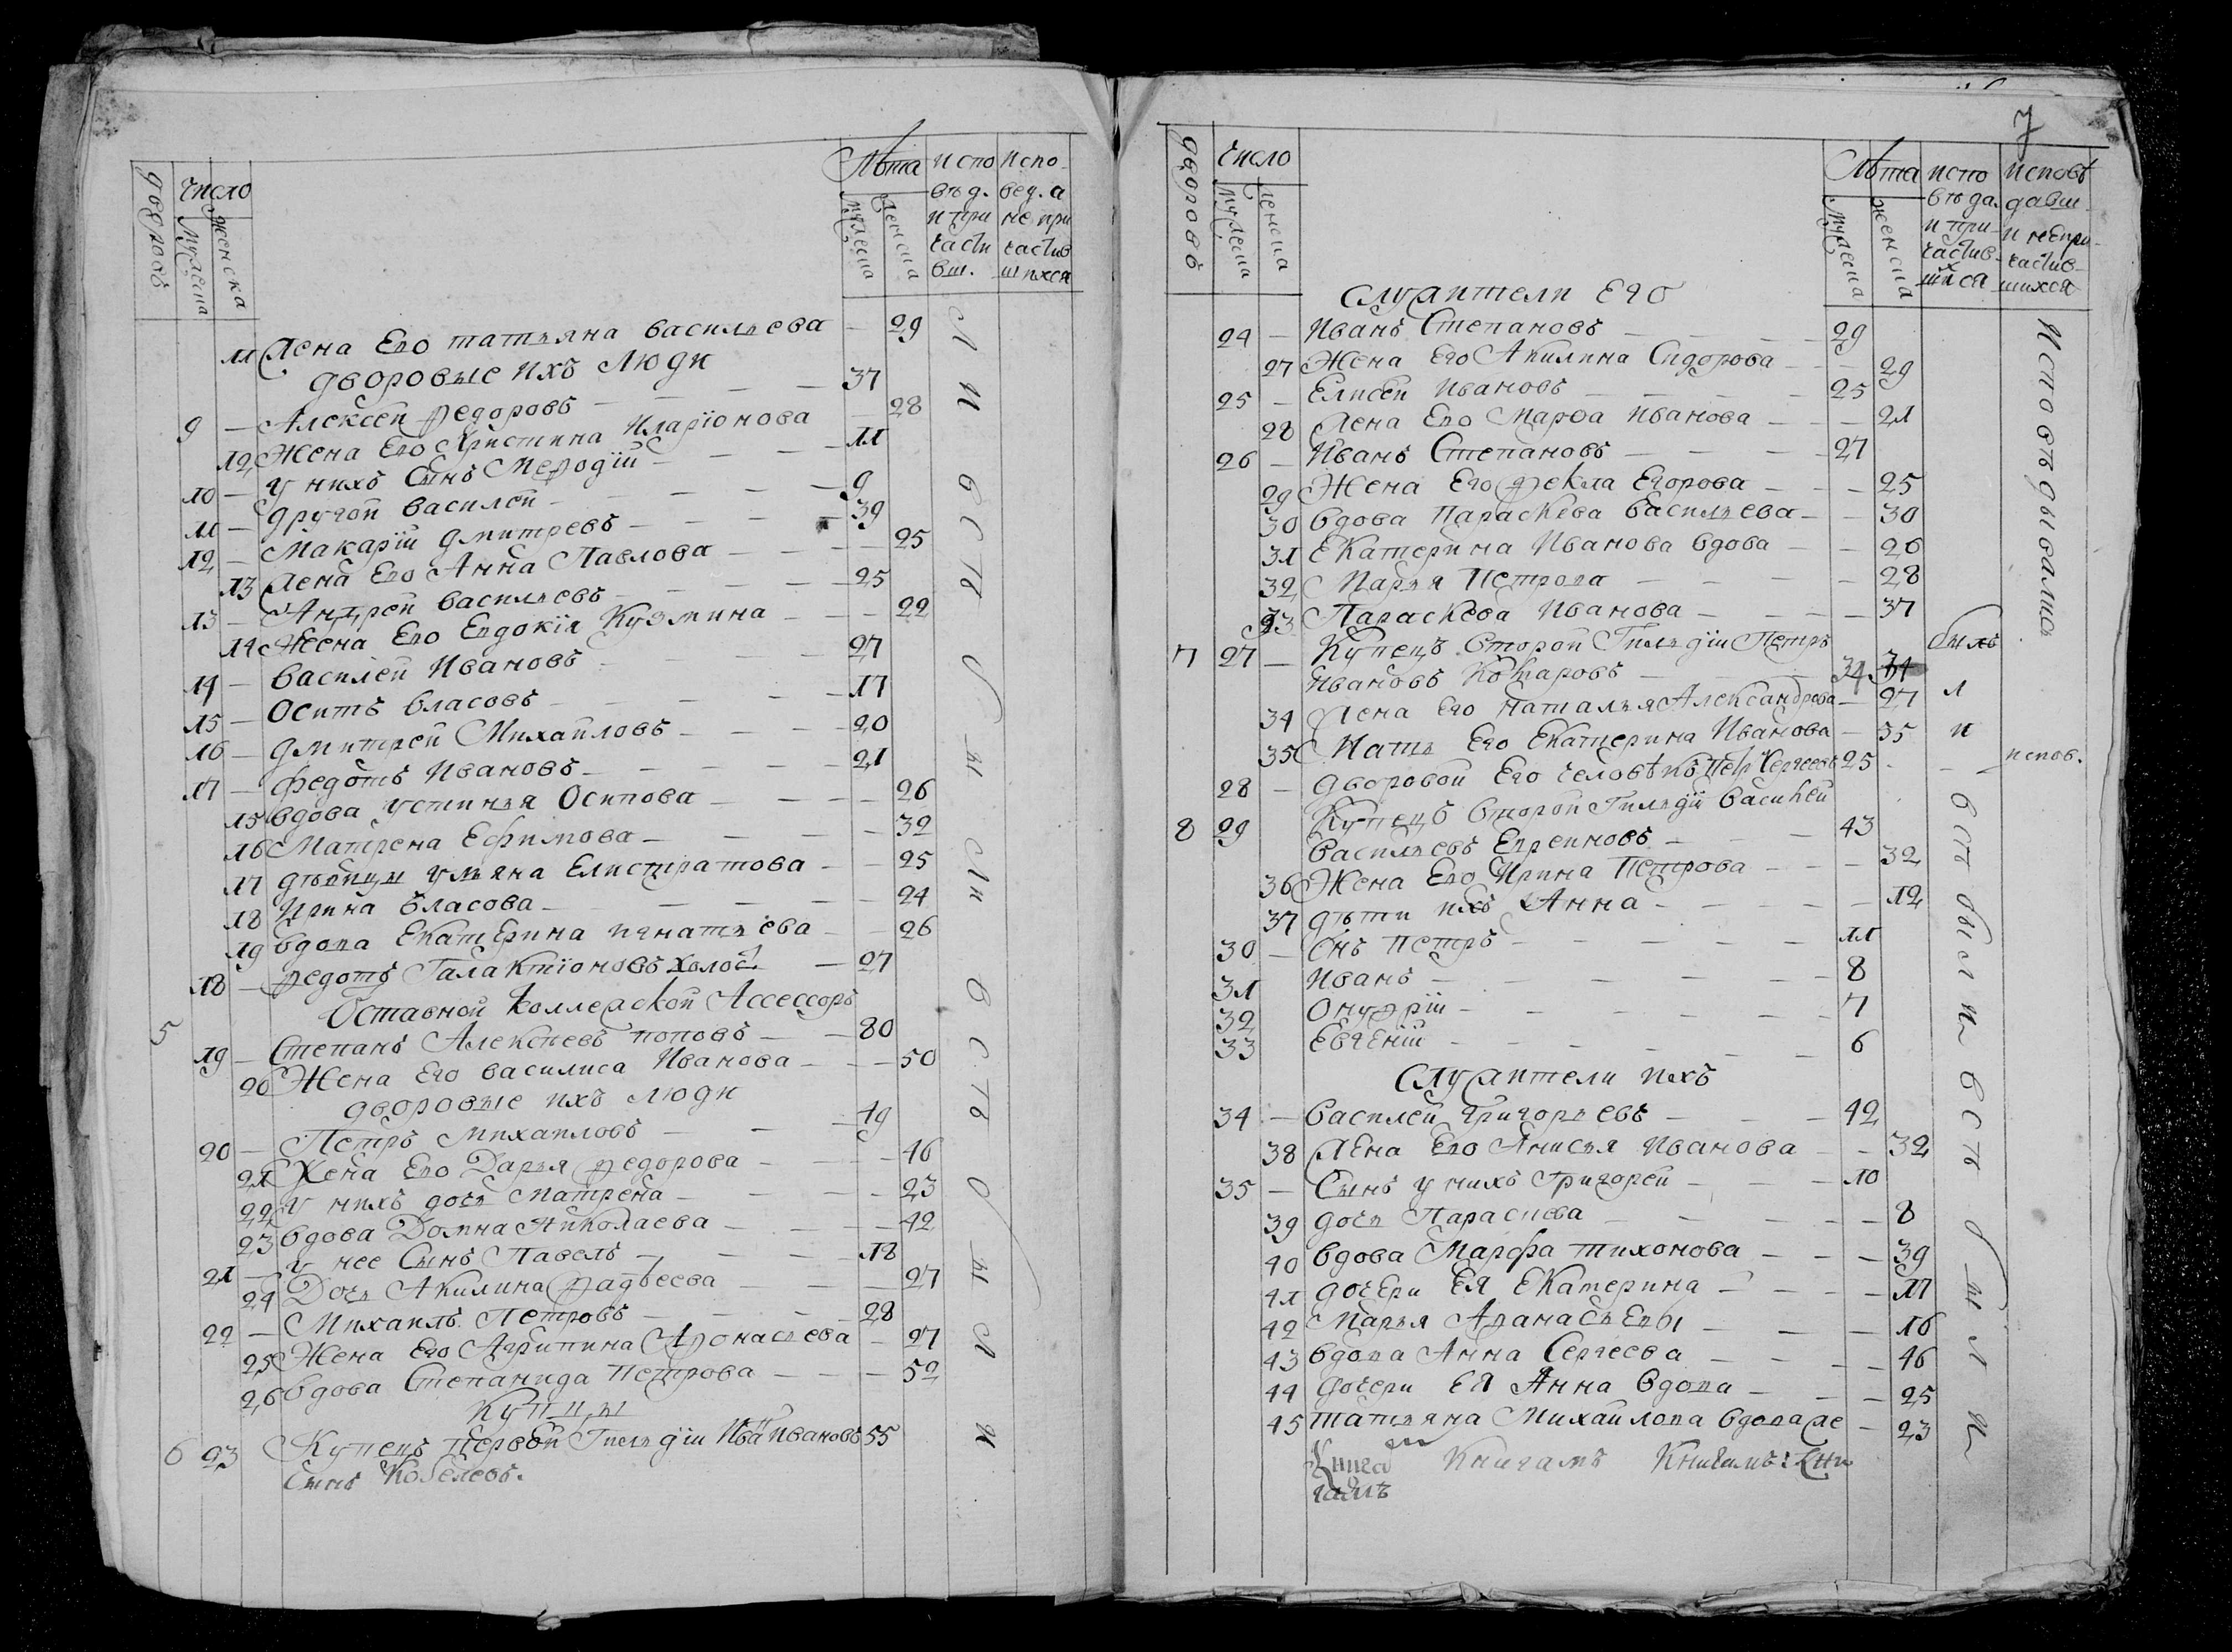 дворовъ Число мужеска женска Лѣта мужеска женска испо вѣд. и при части вш. Испо вед. а не при частив шихся
11 Жена Его татьяна васильева — 29
дворовые ихъ люди
9 — Алексей Федоровъ — — — 37
12 Жена Его Христина Иларіонова — 28
10 — у нихъ Сынъ Мефодій — — 11
11 — другой василей — — — 9
12 — Макарій дмитревъ — — — 39
13 Жена Его Анна Павлова — — — 25
13 — Андрей васильевъ — — — 25
14 Жена Его Евдокія Кузмина — — 22
14 — василей Ивановъ — — — 27
15 — Осипъ власовъ — — — 17
16 — дмитрей Михайловъ — — — 20
17 — федотъ Ивановъ — — — 21
15 вдова устинья Осипова — — — 26
16 Матрена Ефимова — — — 32
17 дѣвицы ульяна Елистратова — — 25
18 Ирина власова — — — 24
19 вдова Екатерина игнатьева — — 26
18 — федотъ Галактіоновъ холос — 27
Оставной Коллежской Ассессоръ
5 19 — Степанъ Алексѣевъ поповъ — — 80
20 Жена Его василиса Иванова — — 50
дворовые ихъ люди
20 — Петръ Михаиловъ — — — 49
21 Жена Его Дарья федорова — — — 46
22 у нихъ дочь Матрена — — — 23
23 вдова Домна Николаева — — — 42
21 — у нее Сынъ Павелъ — — — 18
24 Дочь Акилина фадѣеева — — 27
22 — Михаилъ Петровъ — — — 28
25 Жена Его Агрипина Афонасьева — 27
26 вдова Степанида Петрова — — — 52
Купцы
6 23 Купецъ первой Гильдіи Ива Ивановъ 55
Сынъ Кобелевъ.
и с п о в ѣ д
б ы л и в с ѣ б ы л и
7
дворовъ Число мужеска женска Лѣта мужеска женска испо вѣда. и при- частив- шихся исповѣ давш. и непри- частив- шихся
Служители Его
24 — Иванъ Степановъ — — — 29
27 Жена Его Акилина Сидорова — — 29
25 — Елисей Ивановъ — — — 25
28 Жена Его Марѳа Иванова — — — 21
26 — Иванъ Степановъ — — — 27
29 Жена Его Фекла Егорова — — — 25
30 вдова Параскева васильева — — 30
31 Екатерина Иванова вдова — — 26
32 Марья Петрова — — — 28
33 Параскева Иванова — — — 37
7 27 — Купецъ второй Гильдіи Петръ былъ
Ивановъ Комаровъ — — 34
34 Жена Его Наталья Александрова — 27
35 Мать Его Екатерина Иванова — 35
28 — дворовой Его человѣкъ Петръ Сергеевъ 25 — — испов.
8 29 Купецъ второй Гильдіи василей
васильевъ Евреиновъ — — — 43
36 Жена Его Ирина Петрова — — — 32
37 дѣти ихъ Анна — — — 12
30 — Снъ петръ — — — 11
31 Иванъ — — — 8
32 Онуфрій — — — 7
33 Евгеній — — — 6
Служители ихъ
34 — василей григорьевъ — — 42
38 Жена Его Анисья Иванова — — 32
35 — Сынъ у нихъ Григорей — — — 10
39 дочь Параскева — — — 8
40 вдова Марфа тихонова — — — 39
41 дочери Ея Екатерина — — — 17
42 Марья Афанасьевы — — — 16
43 вдова Анна Сергеева — — — 46
44 дочери Ея Анна вдова — — — 25
45 татьяна Михаилова вдова же — 23
Книга Книгамъ Книгамъ: Кни
гамъ
Исповѣдывались
в с ѣ б ы л и в с ѣ б ы л и